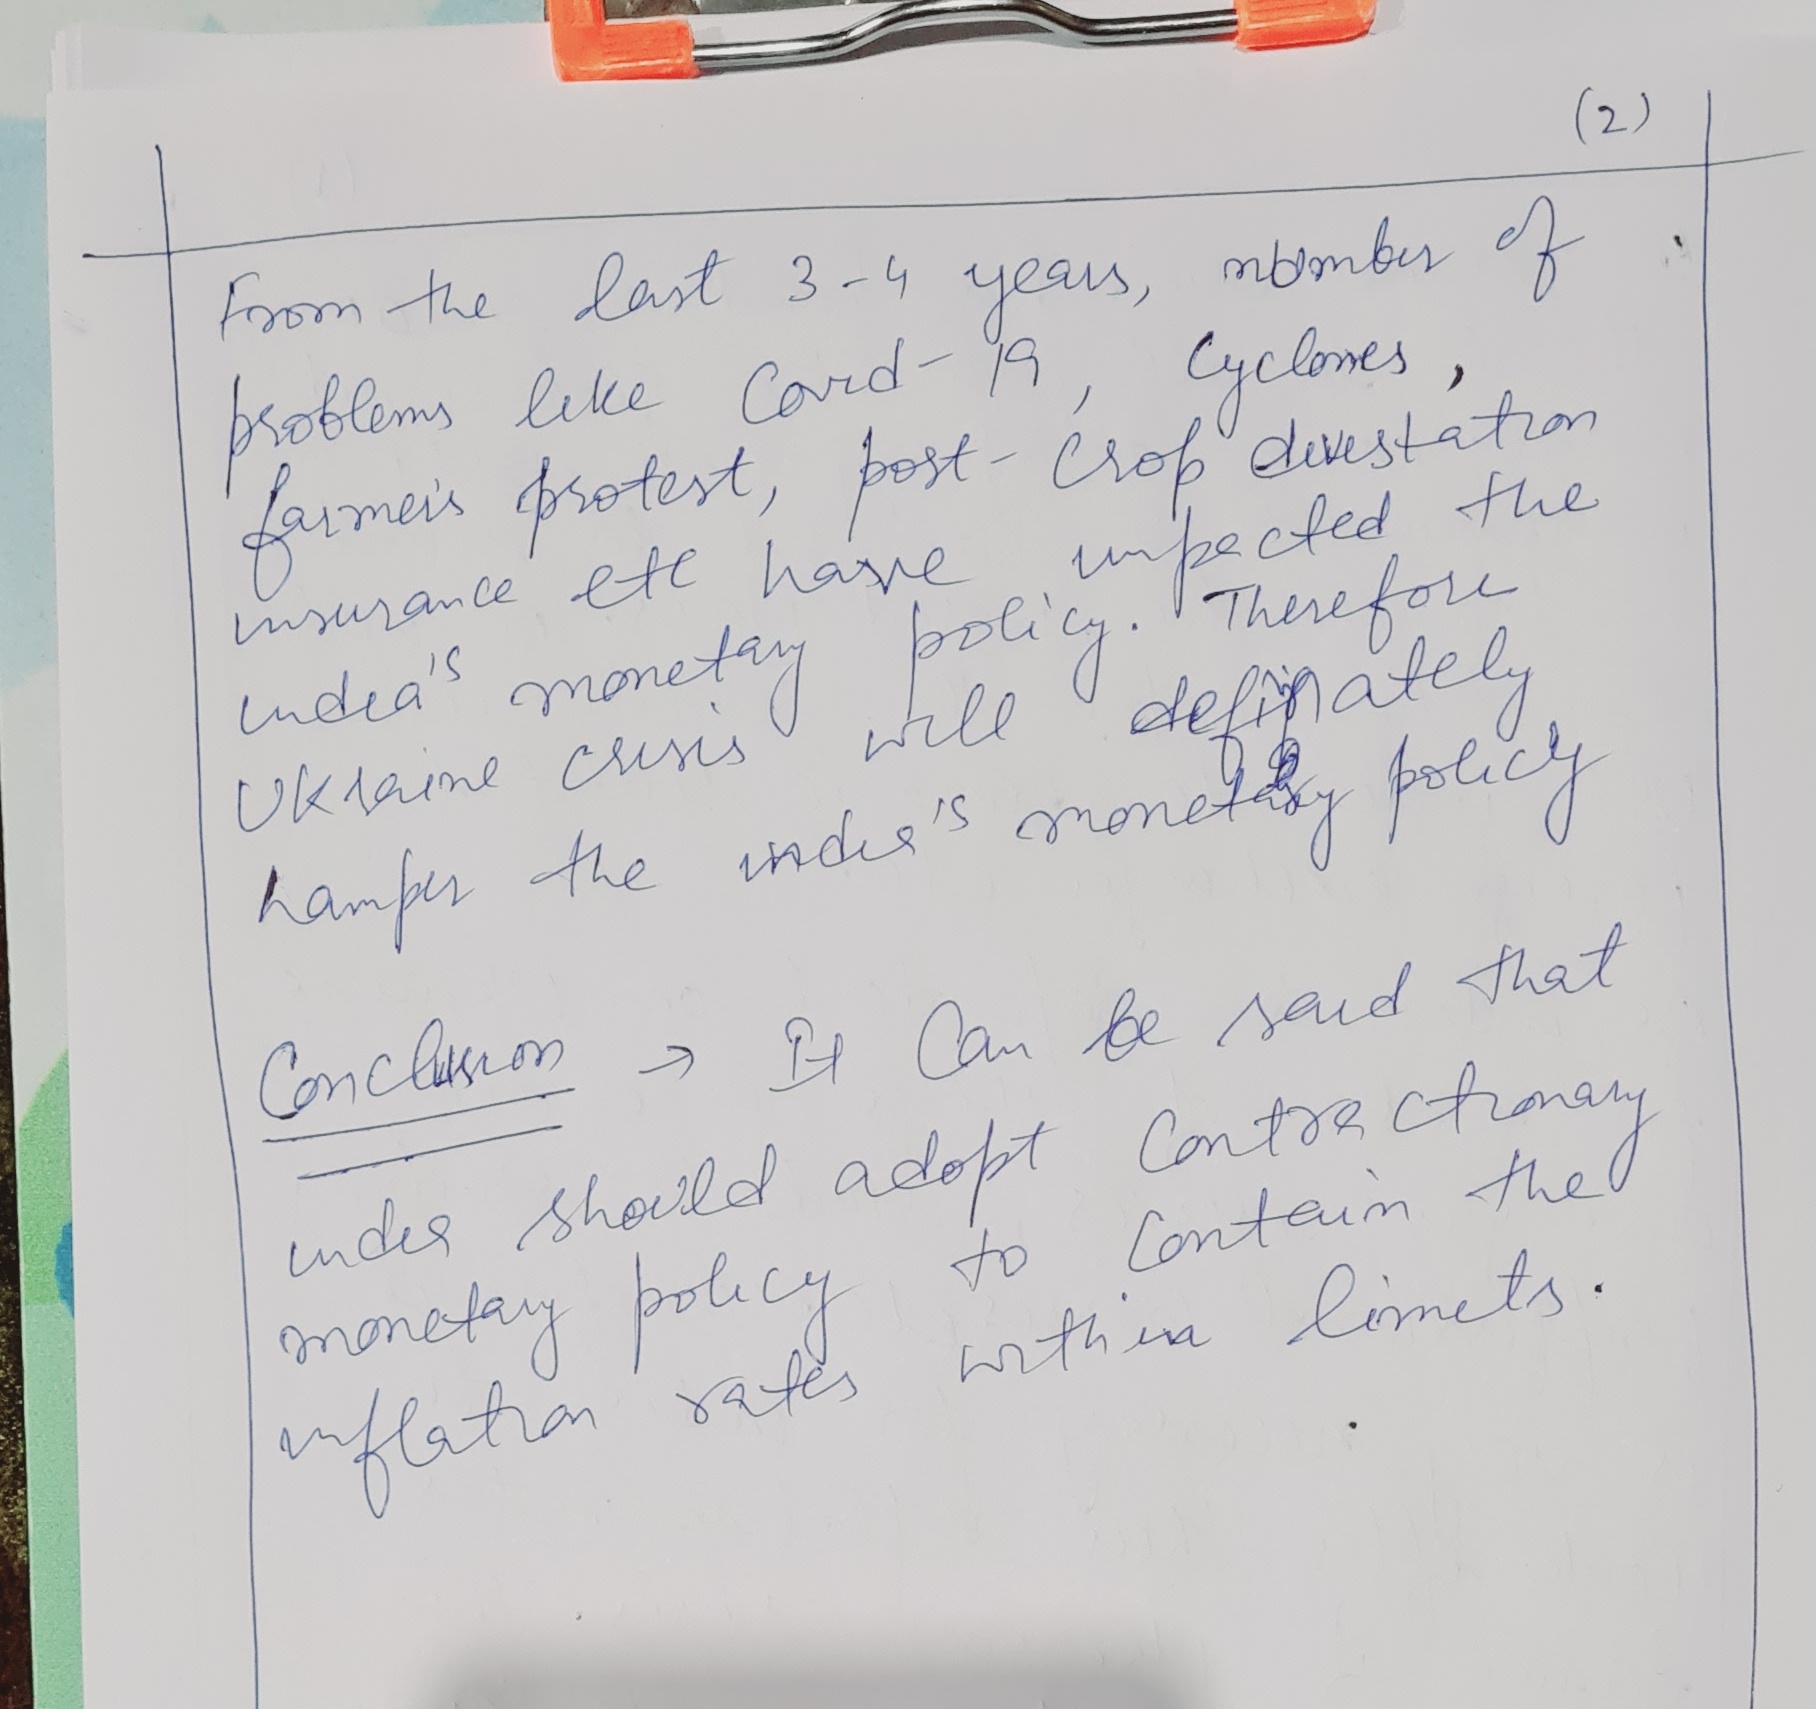 (2)
From the last 3-4 years, number of
problems like Covid-19, Cyclones,
farmer's protest, post-crop devestation
insurance etc have impacted the
india's monetary policy. Therefore
Ukraine crisis will definately
hamper the india's monetary policy
Conclusion → It Can be said that
india should adopt Contractionary
monetary policy to Contain the
inflation rates within limits.